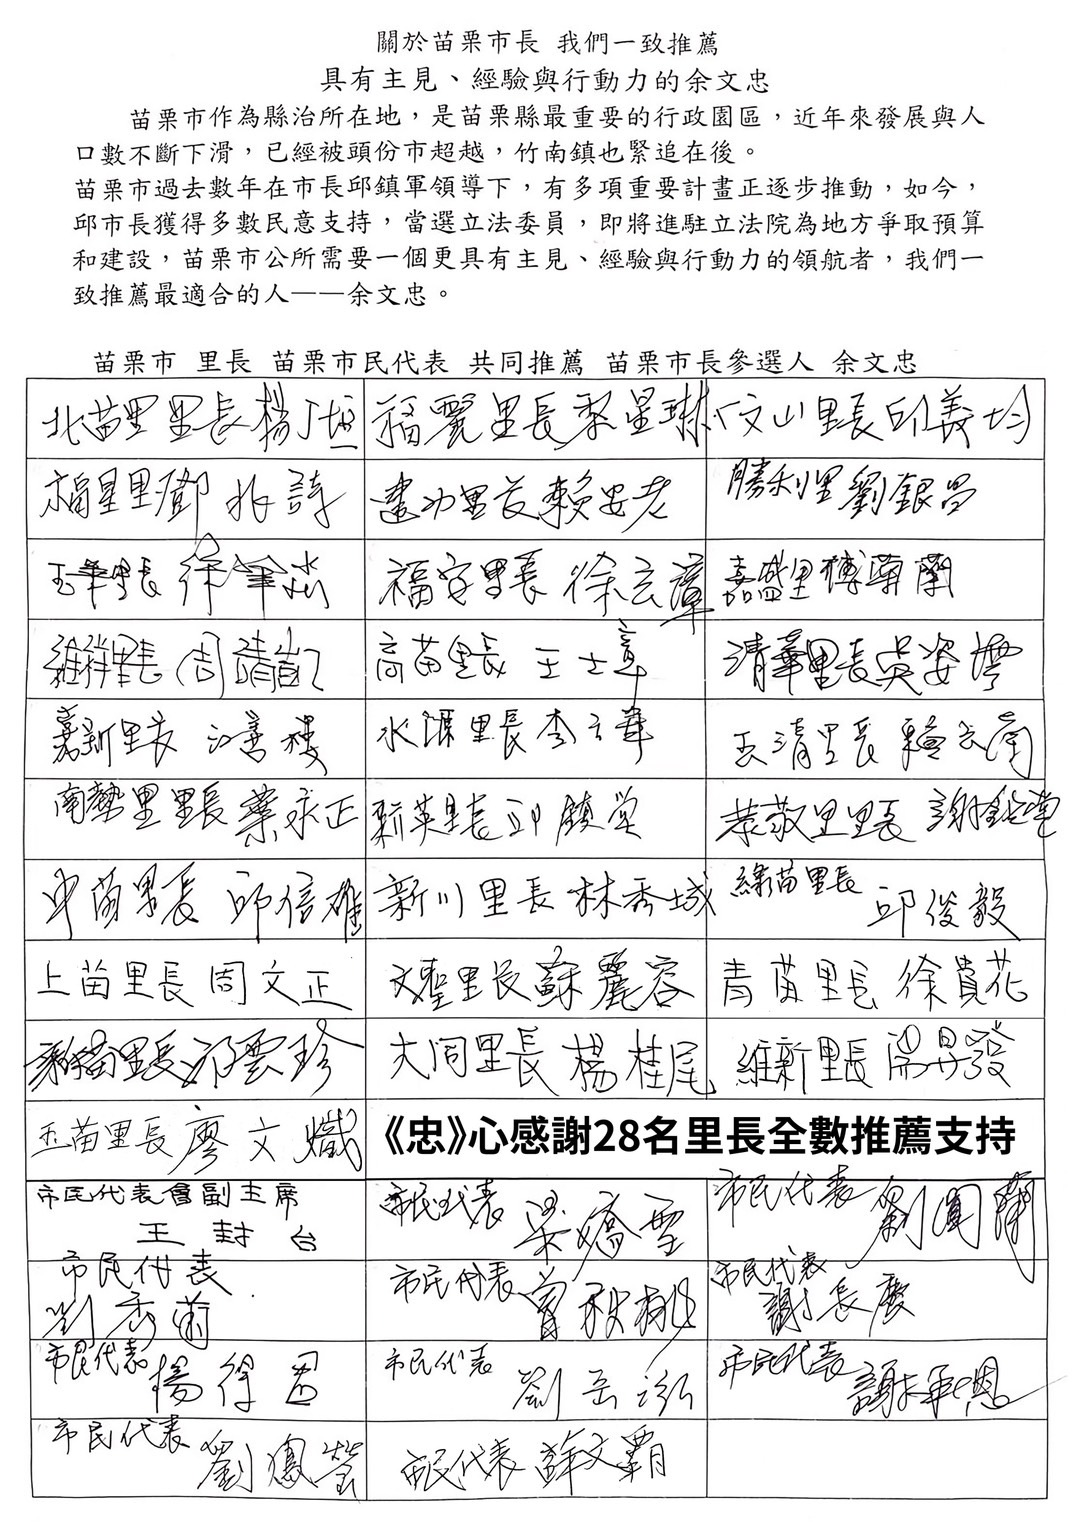 關於苗栗市長 我們一致推薦
具有主見、經驗與行動力的余文忠
苗栗市作為縣治所在地，是苗栗縣最重要的行政園區，近年來發展與人
口數不斷下滑，已經被頭份市超越，竹南鎮也緊追在後。
苗栗市過去數年在市長邱鎮軍領導下，有多項重要計畫正逐步推動，如今，
邱市長獲得多數民意支持，當選立法委員，即將進駐立法院為地方爭取預算
和建設，苗栗市公所需要一個更具有主見、經驗與行動力的領航者，我們一
致推薦最適合的人——余文忠。
苗栗市 里長 苗栗市民代表 共同推薦 苗栗市長參選人 余文忠
北苗里里長楊
福麗里長黎星琳
文山里長邱義均
福星里鄧兆詩
建功里長賴安老
勝利里劉銀昌
玉華里長 徐
福安里長 徐玄璋
嘉盛里 蘭
維祥里長 周靖凱
高苗里長 王士章
清華里長吳姿樗
嘉新里長
水源里長李
玉清里長 賴 蘭
南勢里里長葉永正
新英里長邱鎮堂
恭敬里里長 謝
中苗里長 邱信雄
新川里長林秀城
綠苗里長
邱俊毅
上苗里長周文正
文聖里長蘇麗容
青苗里長 徐貴花
新苗里長 雲珍
大同里長 楊桂尾
維新里長
玉苗里長廖文熾
《忠》心感謝28名里長全數推薦支持
市民代表會副主席
王封台
市民代表 梁嬌雲
市民代表 劉 蘭
市民代表
劉秀
市民代表 曾秋桃
市民代表
謝長慶
市民代表 楊徐
市民代表 劉岳泓
市民代表
恩
市民代表 劉鳳鶯
市民代表 薛文霸